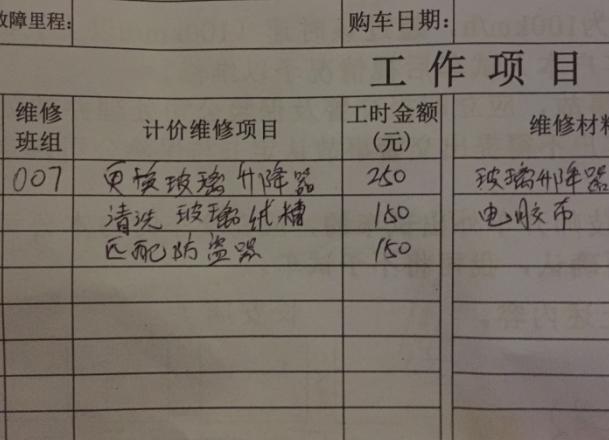 故障里程:
购车日期:
工作项目
维修班组 计价维修项目 工时金额(元) 维修材料
007 更换玻璃升降器 250 玻璃升降器
清洗玻璃绒槽 150 电胶布
匹配防盗器 150